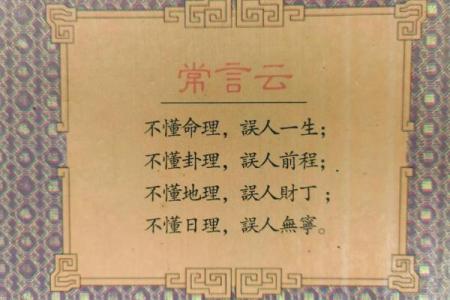 常言云
不懂命理，誤人一生；
不懂卦理，誤人前程；
不懂地理，誤人財丁；
不懂日理，誤人無寧。